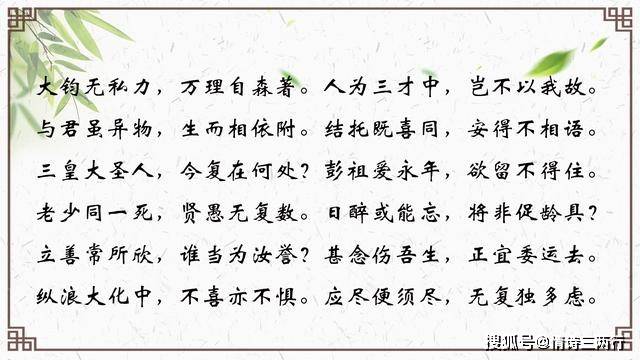 大钧无私力，万理自森著。人为三才中，岂不以我故。
与君虽异物，生而相依附。结托既喜同，安得不相语。
三皇大圣人，今复在何处？彭祖爱永年，欲留不得住。
老少同一死，贤愚无复数。日醉或能忘，将非促龄具？
立善常所欣，谁当为汝誉？甚念伤吾生，正宜委运去。
纵浪大化中，不喜亦不惧。应尽便须尽，无复独多虑。
搜狐号@情诗三两行